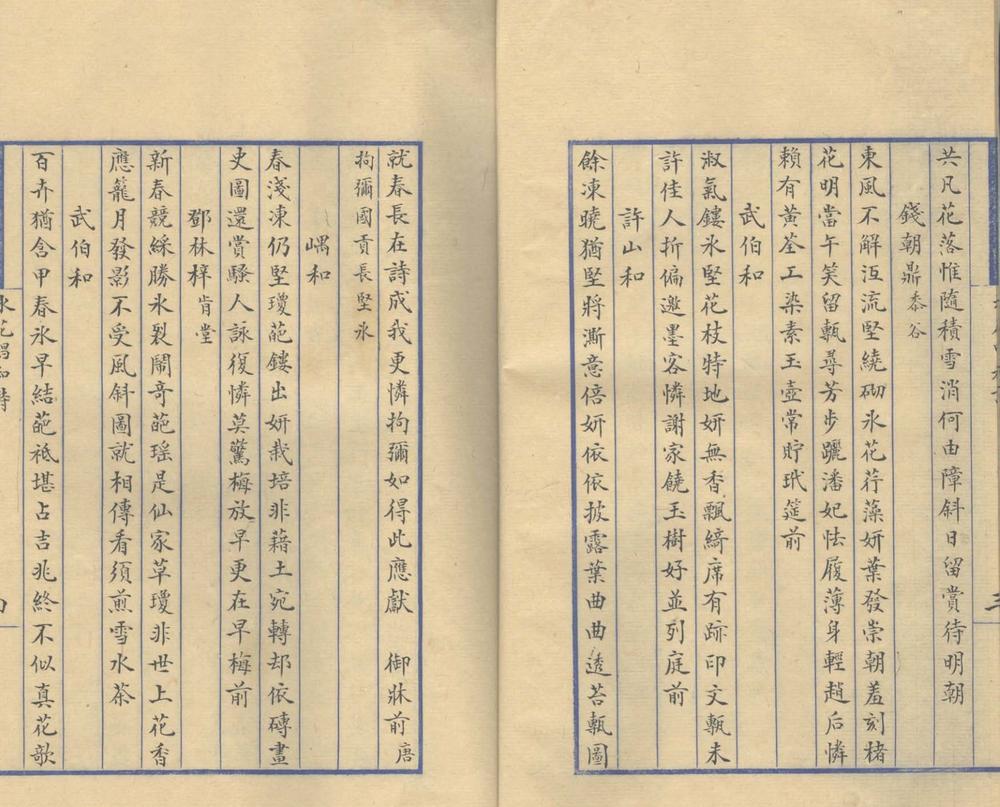 共凡花落惟隨積雪消何由障斜日留賞待明朝
錢朝鼎黍谷
東風不解沍流堅繞砌氷花荇藻妍葉發崇朝羞刻楮
花明當午笑留甎尋芳步躧潘妃怯履薄身輕趙后憐
賴有黃荃工染素玉壺常貯玳筵前
武伯和
淑氣鏤氷堅花枝特地妍無香飄綺席有跡印文甎未
許佳人折偏邀墨客憐謝家饒玉樹好並列庭前
許山和
餘凍曉猶堅將澌意倍妍依依披露葉曲曲透苔甎圖
就春長在詩成我更憐拘彌如得此應獻 御牀前唐
拘彌國貢長堅氷
嵎和
春淺凍仍堅瓊葩鏤出妍栽培非藉土宛轉却依磚畫
史圖還賞騷人詠復憐莫驚梅放早更在早梅前
鄧林梓肯堂
新春競綵勝氷裂鬧奇葩瑤是仙家草瓊非世上花香
應籠月發影不受風斜圖就相傳看須煎雪水茶
武伯和
百卉猶含甲春氷早結葩祗堪占吉兆終不似真花歌